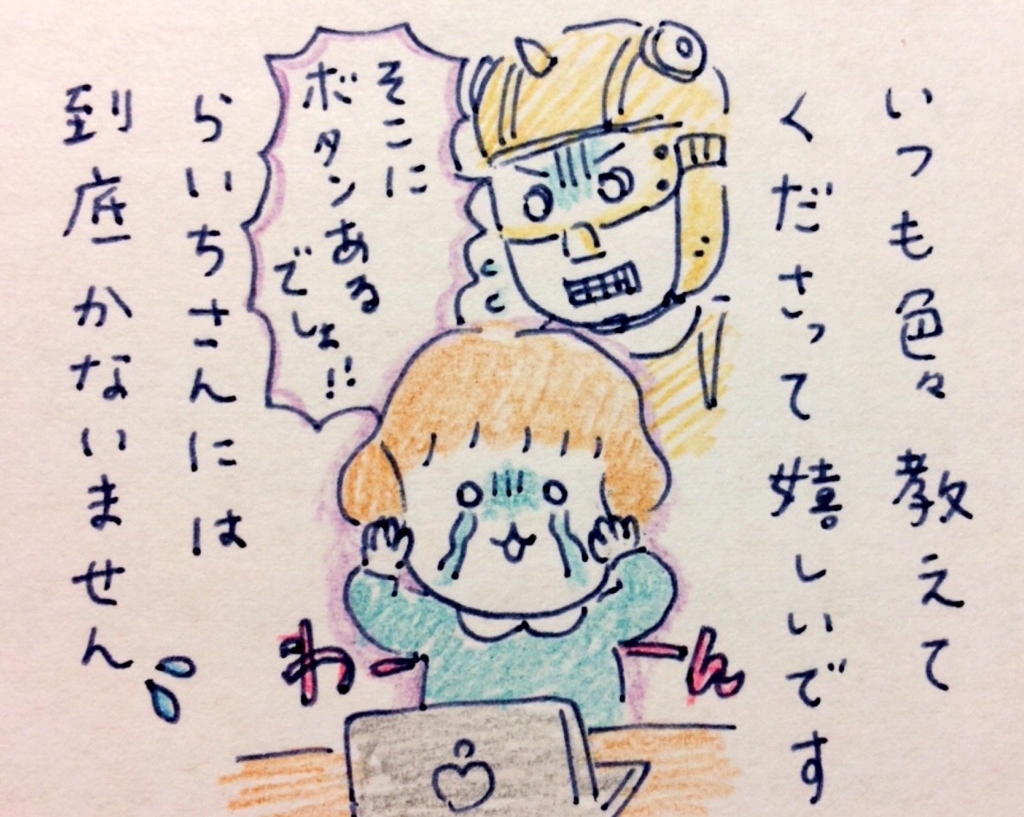 いつも色々教えて
くださって嬉しいです
そこに
ボタンある
でしょ!!
らいちさんには
到底かないません
わーーん